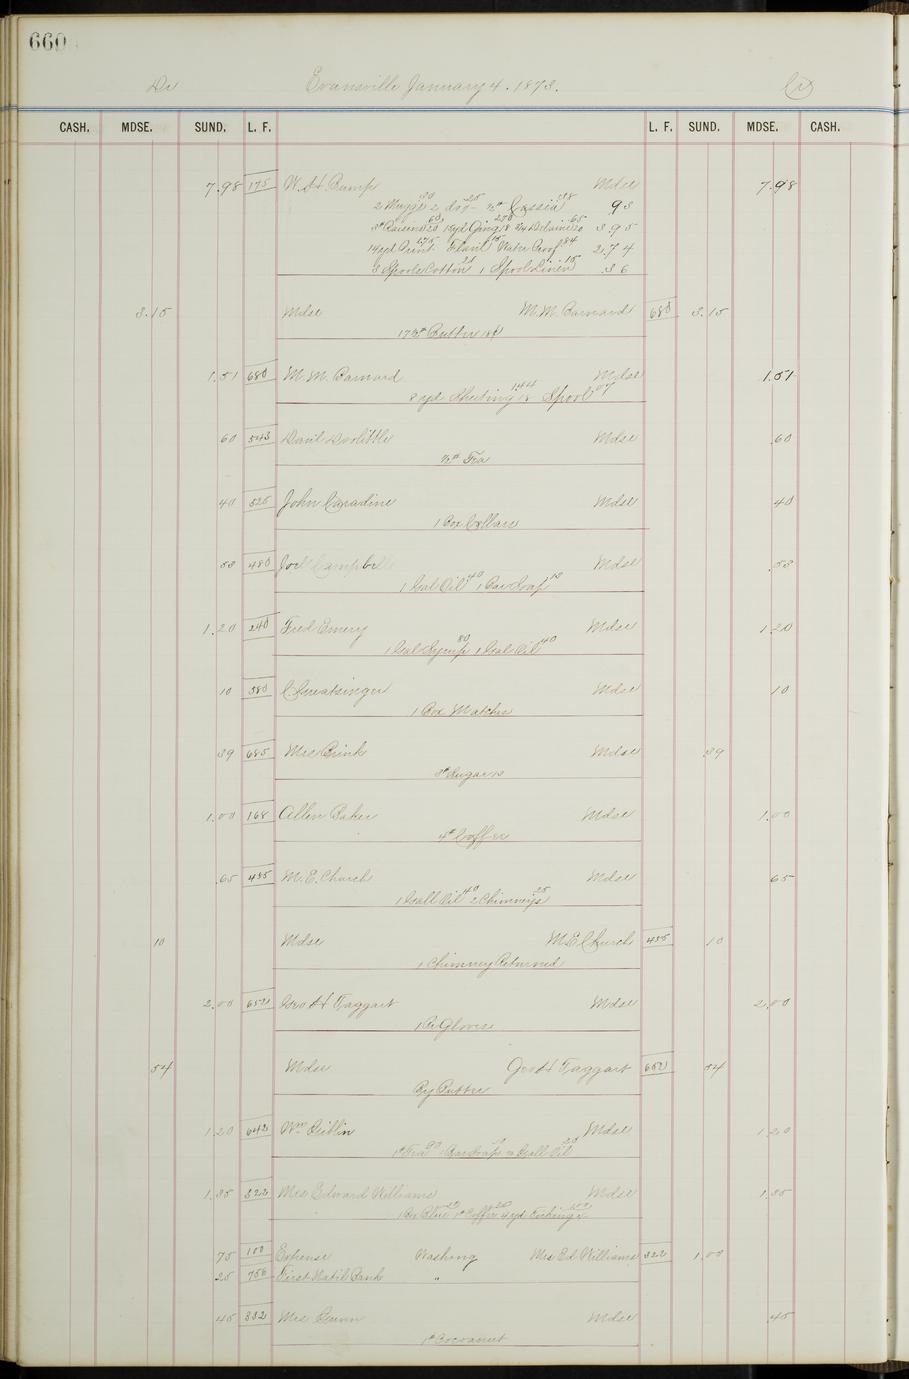 660
Dr Evansville January 4. 1873. Cr
CASH. MDSE. SUND. L. F. L. F. SUND. MDSE. CASH.
7.98 175 W. H. Bump Mdse 7.98
2 Muggs 20 2 do 25 ½# Cassia 38 93
3# Raisens 20 60 15yd Ging 18 270 Delaine 65 3.95
14yd Print 175 Flanl 15 Water Proof 84 2.74
3 Spools Cotton 21 1 Spool Linen 15 .36
3.15 Mdse M. M. Barnard 680 3.15
17½# Butter 18
1.51 680 M. M. Barnard Mdse 1.51
8 yd Sheeting 18 144 Spool 07
60 543 Danl Doolittle Mdse .60
½# Tea
40 525 John Caradine Mdse 40
1 Box Collars
50 480 Joel Campbell Mdse .50
1 Gal Oil 40 1 Bar Soap 10
1.20 240 Fred Emery Mdse 1.20
1 Gal Syrup 80 1 Gal Oil 40
10 380 Mdse 10
1 Box Matches
39 685 Mrs Mdse 39
3# Sugar 13
1.00 168 Allen Baker Mdse 1.00
4# Coffee
.65 435 M. E. Church Mdse 65
1 Gall Oil 40 2 Chimneys 25
10 Mdse M E Church 435 10
1 Chimney Returned
2.00 652 Geo H Taggart Mdse 2.00
1 Pr Gloves
54 Mdse Geo H Taggart 652 54
By Butter
1.20 642 Wm Mdse 1.20
1# Tea 90 1 Bar Soap 10 ½ Gall Oil 20
1.35 322 Mrs Edward Williams Mdse 1.35
1# Coffee 25 4 yd
75 100 Expense Washing Mrs Ed Williams 322 1.00
25 756 First Natil Bank "
45 332 Mrs Gunn Mdse .45
1# Cocoanut